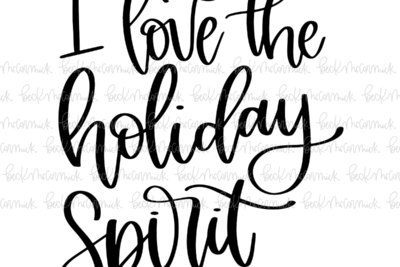 I love the
holiday
Spirit